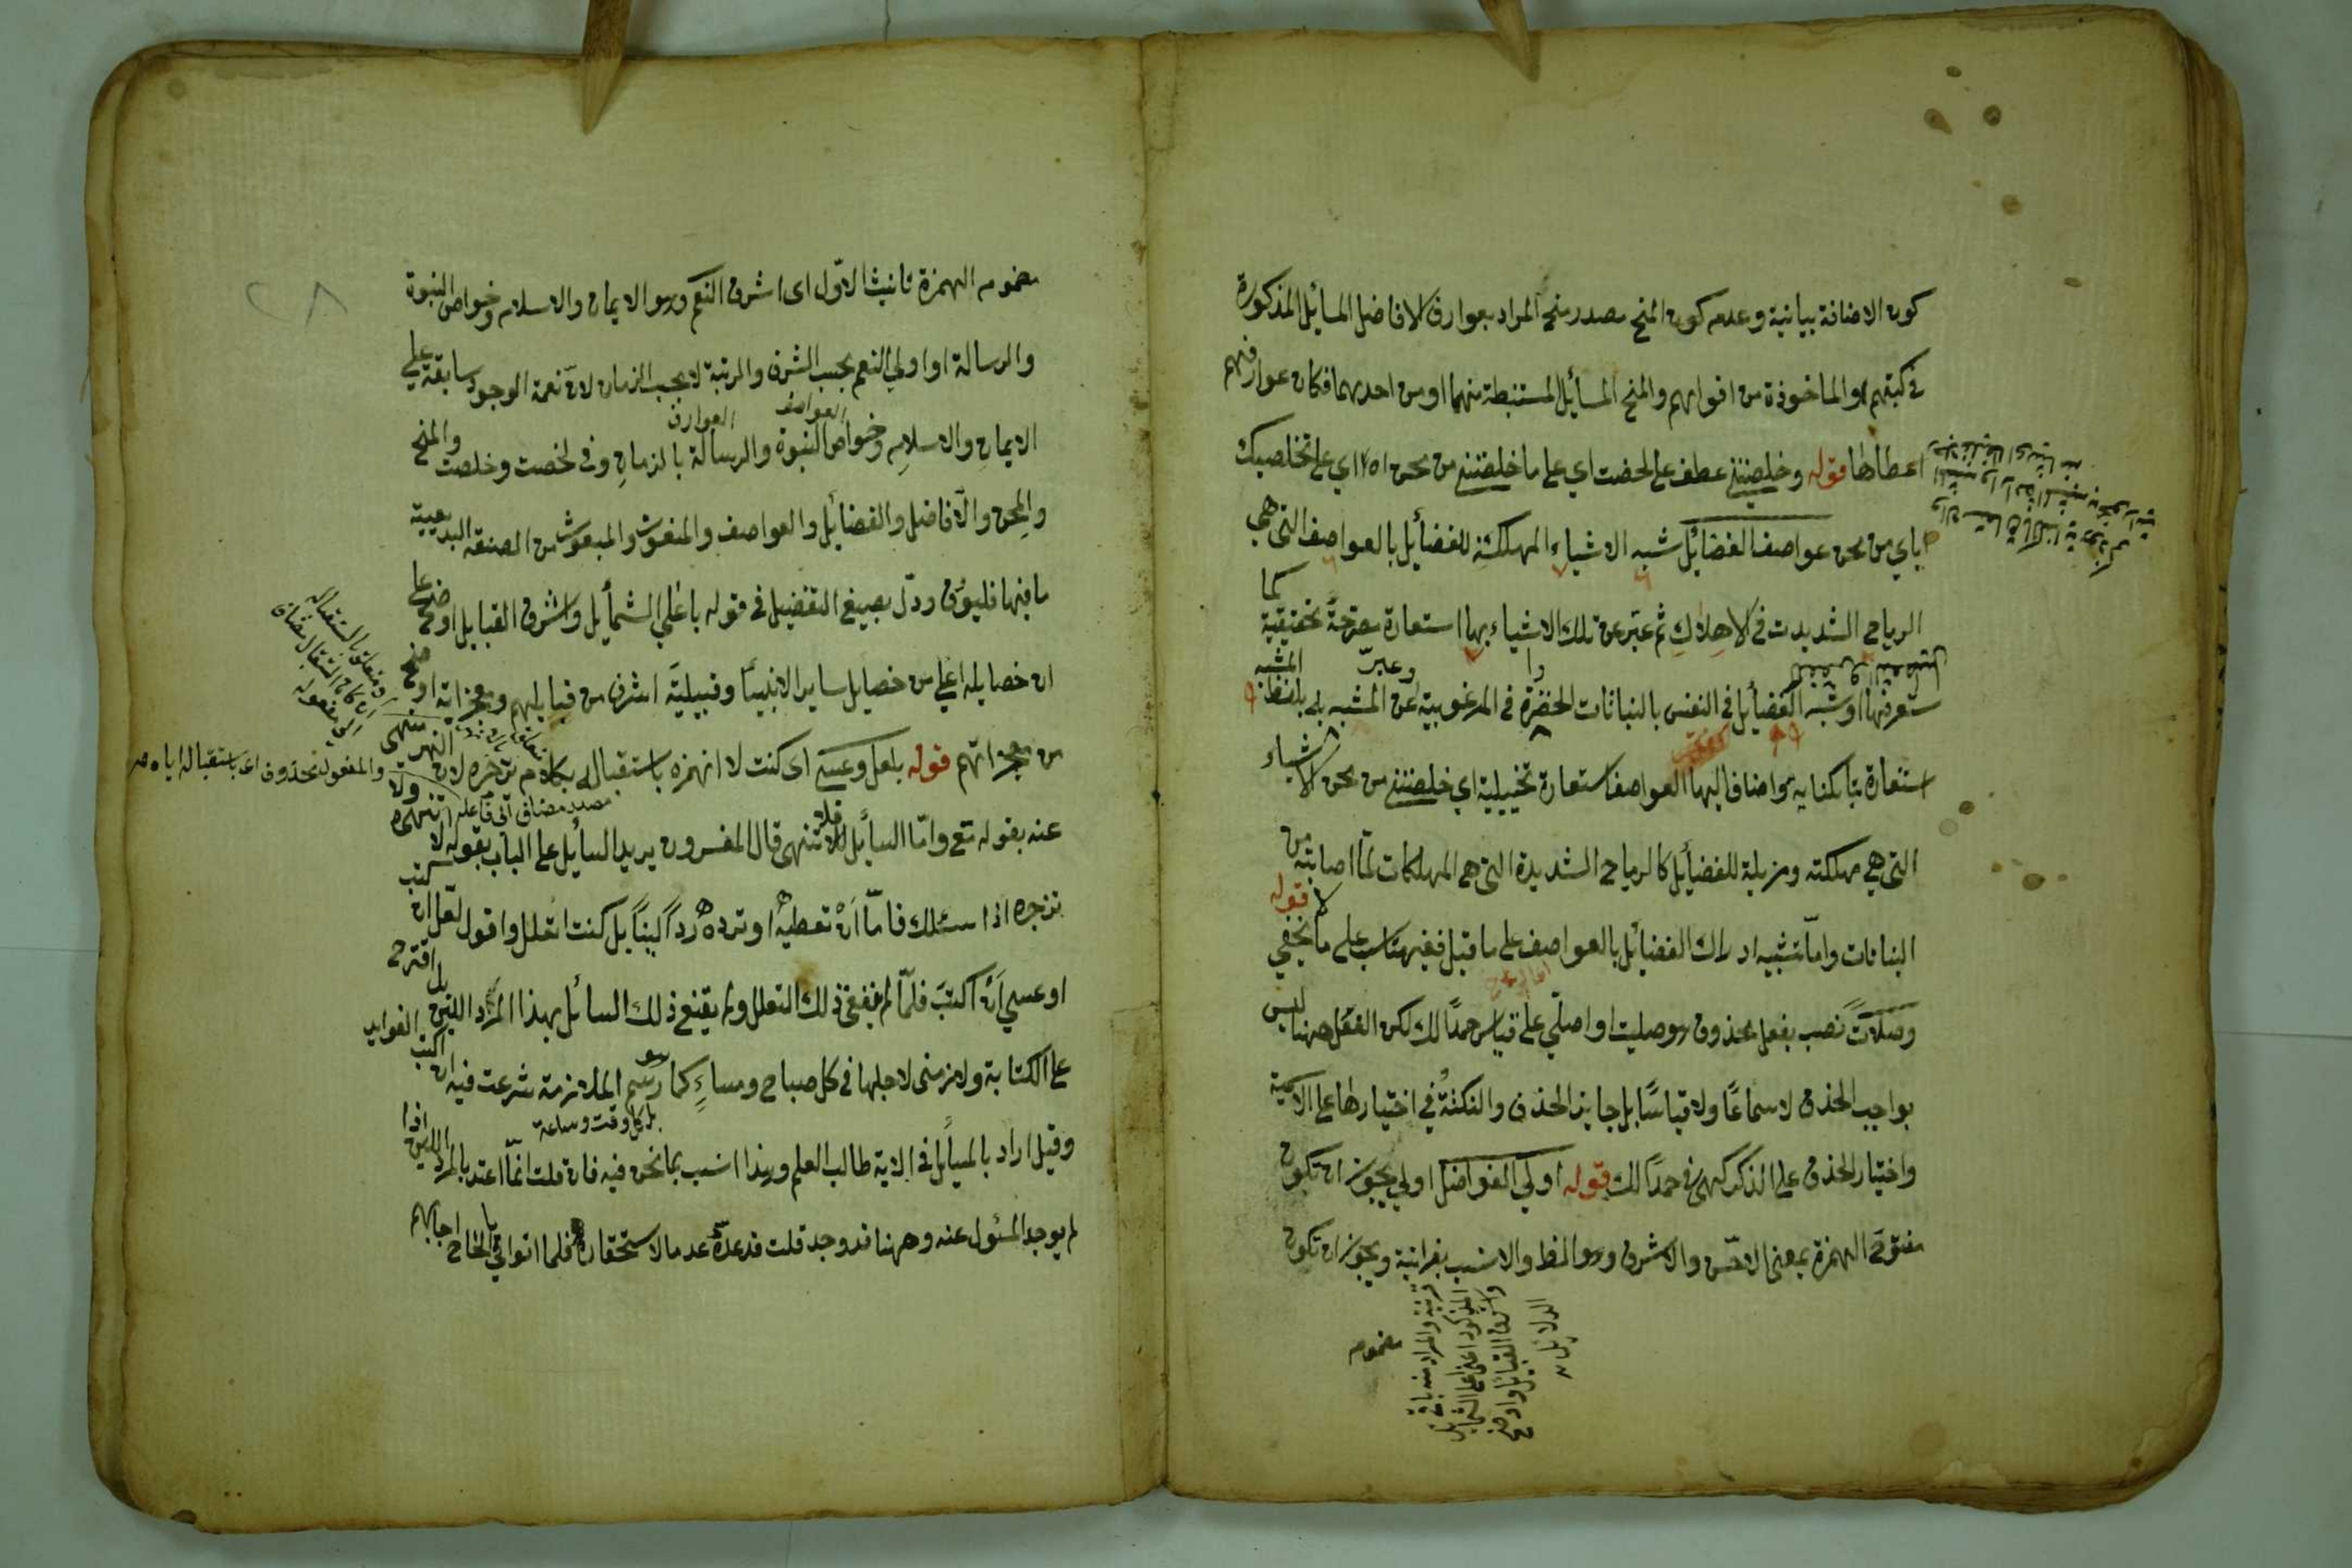 كون الاضافة بيانية وعدم كون المنح مصدر منح المراد بعوارف الافاضل المسائل المذكورة
في كتبهم او الماخوذة من افواههم والمنح المسائل المستنبطة منهما او من احديهما فكان عوارفهم
اعطاها قوله وخلصتنى عطف على لخصت اي على ما خلصتنى من محن اه اي على تخلصيك
اياي من محن عواصف الفضائل شبه الاشياء المهلكة للفضائل بالعواصف التى هي
الرياح الشديدت في الاهلاك ثم عبر عن تلك الاشياء بها استعارة مصرحة تحقيقية كما
ستعرفها او شبه الفضائل فى النفس بالنباتات الخضرة في المرغوبية وعبر عن المشبه به بلفظ المشبه
استعارة بالكناية واضاف اليها العواصف استعارة تخييلية اي خلصتنى من محن الاشياء
التى هي مهلكته ومزيلة للفضائل كالرياح الشديدة التى هى المهلكات لما اصابته من
النباتات واما تشبيه ادراك الفضائل بالعواصف على ما قيل فغير مناسب على ما لا يخفي قوله
وصلات نصب بفعل محذوف هو صليت او اصلي على قياس حمدا لك لكن الفعل ههنا ليس
بواجب الحذف لا سماعا ولا قياسا بل جايز الحذف والنكتة في اختيارها على الاسمية
واختيار الحذف على الذكر كهى في حمدا لك قوله اولى الفواضل اولى يجوز ان تكون
مفتوح الهمزة بمعنى الاحسن والاشرف وهو المظ والانسب بقرانية ويجوز ان تكون
قرينة والمراد منه باق
المذكور اعنى اعلى الشمايل
واشرف القبايل واوضح
الدلايل
مضموم
٢٨
مضموم الهمزة تانيث الاول اى اشرف النعم وهو الايمان والاسلام وخواص النبوة
والرسالة او اولي النعم بحسب الشرف والمرتبة لا بحسب الزمان لان نعمة الوجود سابقة على
الايمان والاسلام وخواص النبوة والرسالة بالزمان وفى لخصت وخلصت والمنح
العوارف العواصف
والمحن والافاضل والفضائل والعواصف والمنعوت والمبعوث من الصنعة البديعية
ما فيها فليؤق ودل بصيغ التفضيل في قوله باعلي الشمائل واشرف القبايل اوضح على
ان خصايله اعلي من خصايل ساير الانبياء وقبيلته اشرف من قبايلهم ومعجزاته اوضح
من معجزاتهم قوله بلعل وعسى اى كنت لا انهزه باستقباله بكلام تزجره لان النهر منهى
والمفعول محذوف اى باستقباله اياه
مصدر مضاف الى فاعله
عنه بقوله تع واما السائل فلا تنهر قال المفسرون يريد السائل على الباب بقوله لا
تزجره اذا سئلك فاما ان تعطيه او ترده ردا لينا بل كنت اتعلل واقول لعل ان اكتب
او عسى ان اكتب فلما لم ينفعنى ذلك التعلل ولم يقنع ذلك السائل بهذا الرد اللين بل اقترح
على الكتابة ولازمنى لاجلها في كل صباح ومساء كما هو رسم الملازمة شرعت فيه ان اكتب الفوايد
بل كل وقت وساعة
وقيل اراد بالسائل في الاية طالب العلم وهذا انسب بما نحن فيه فان قلت انما اعتد بالرد اللين اذا
لم يوجد المسئول عنه وههنا قد وجد قلت قد عده عدما لاستحقاره فلما اتوا في الحاح اجابهم